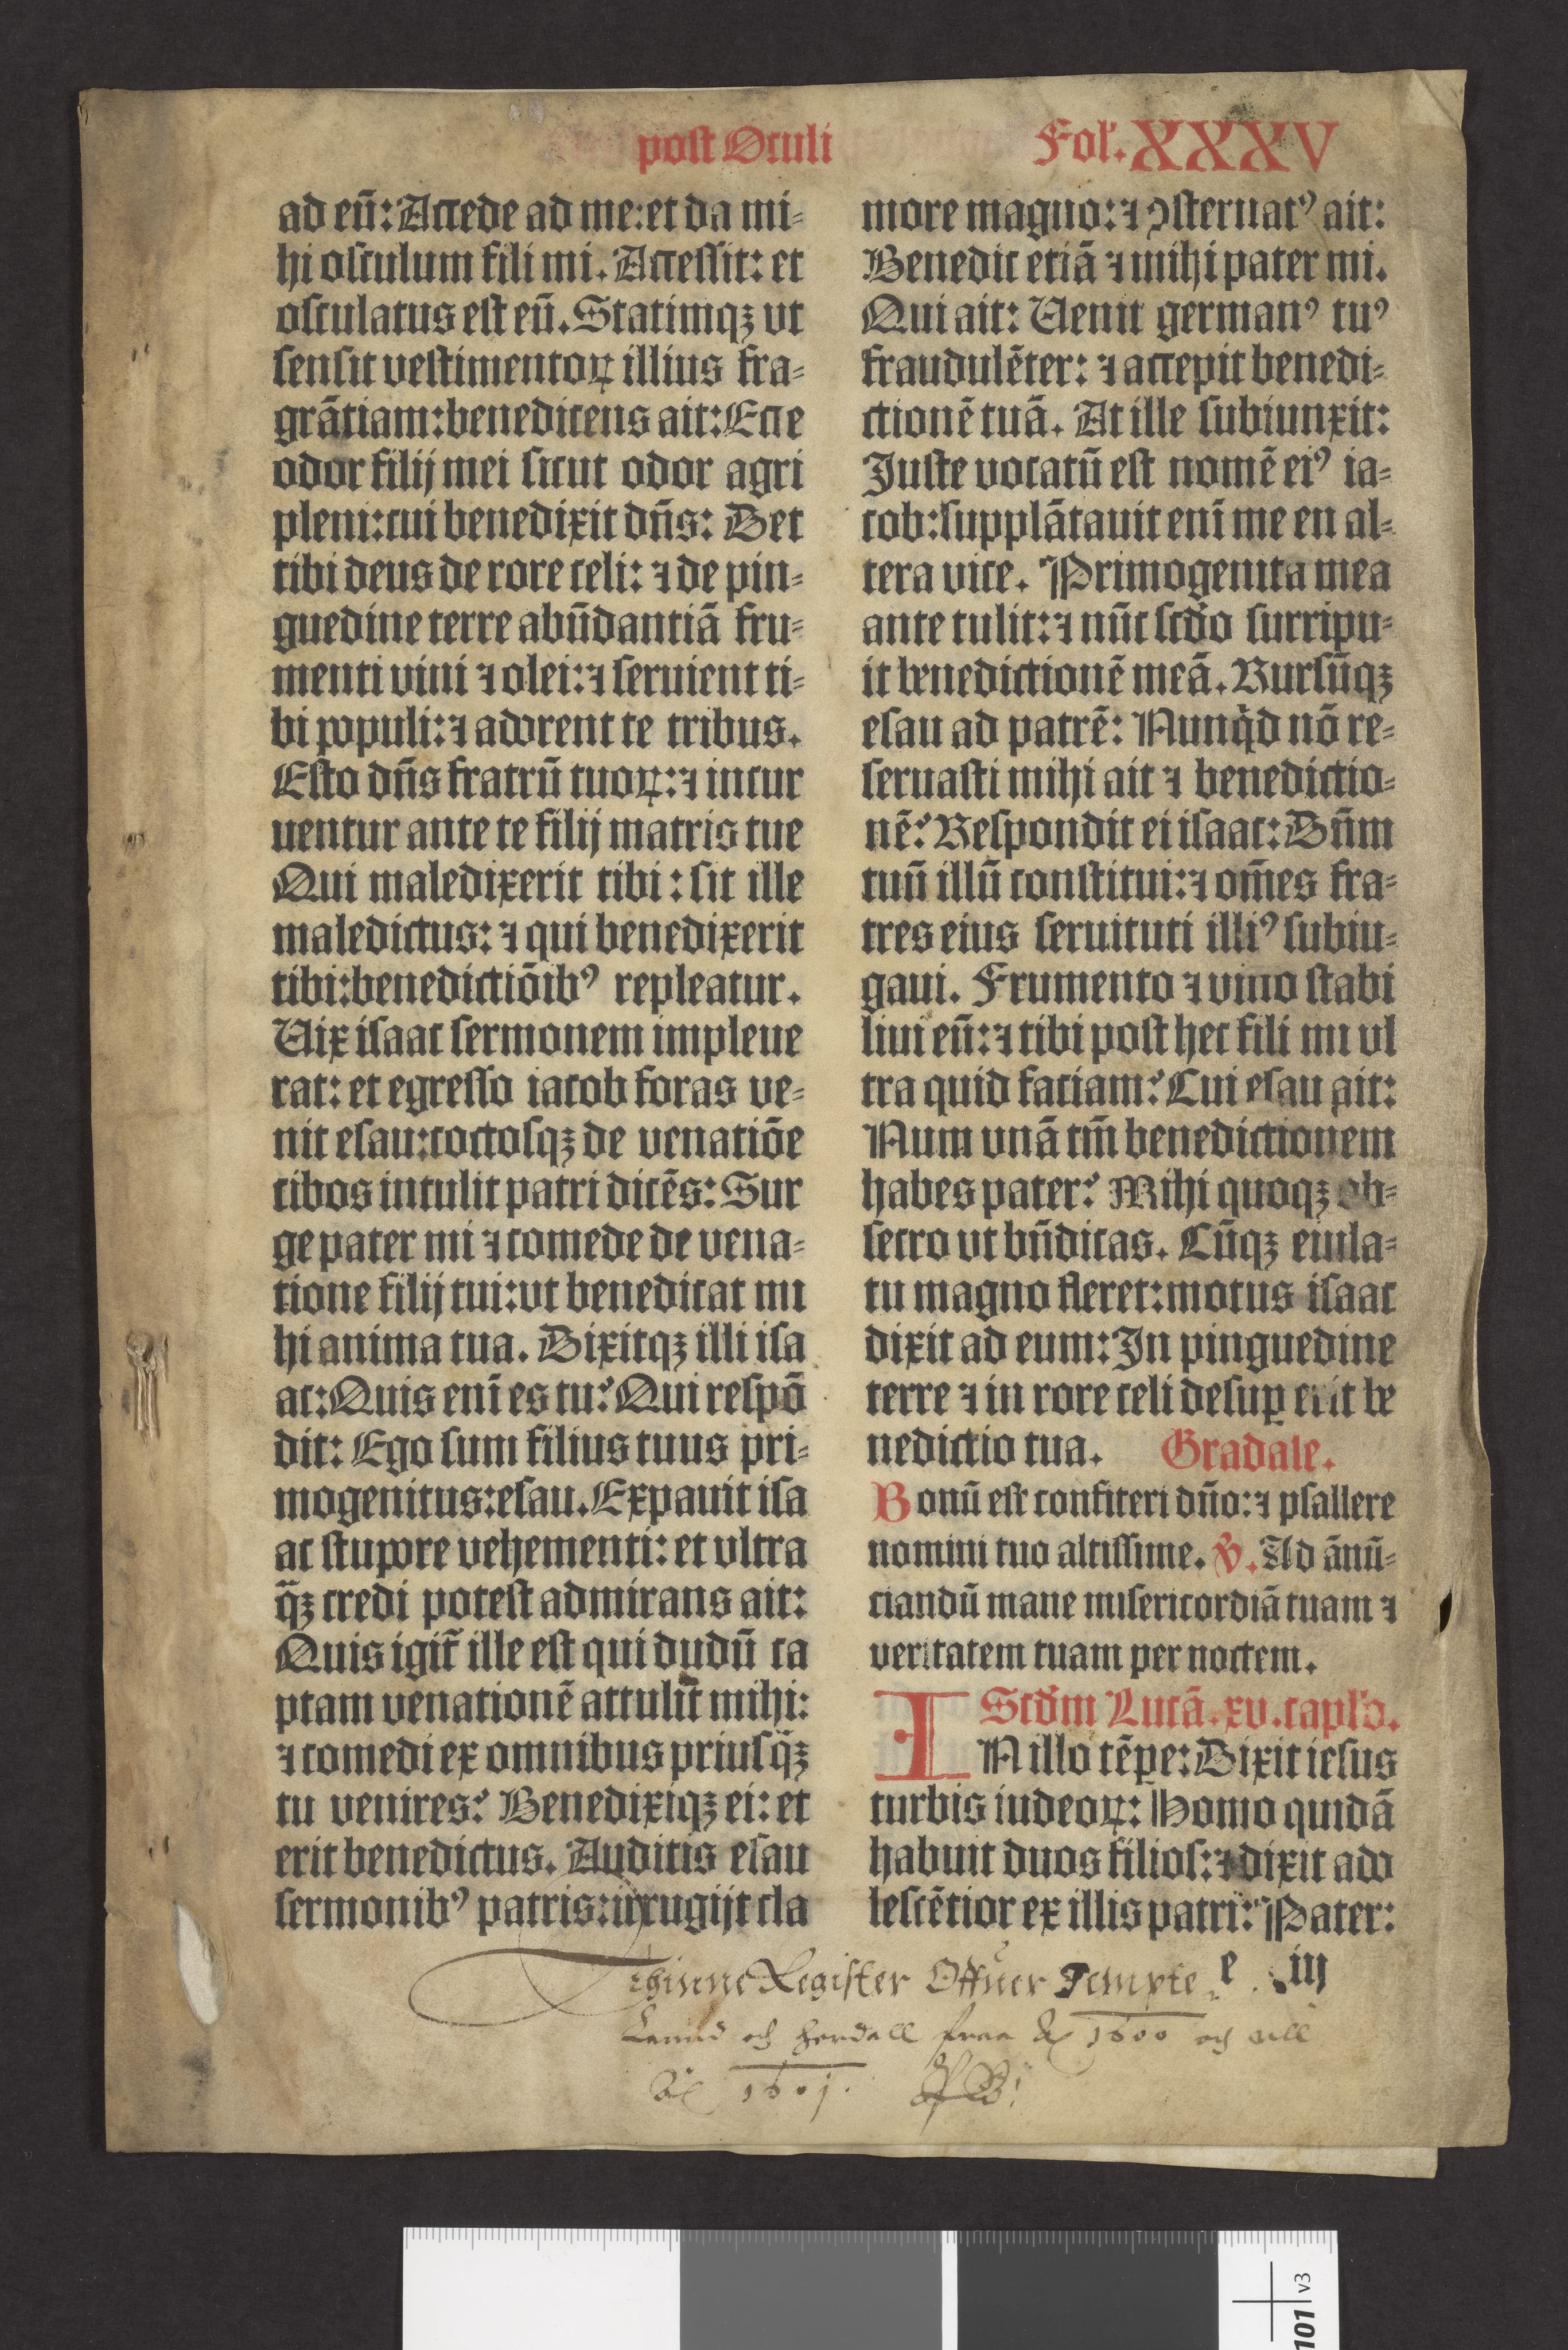 post Oculi
Fol'. XXXV
ad eū: Accede ad me: et da mi-
hi osculum fili mi. Accessit: et
osculatus est eū. Statimqꝫ vt
sensit vestimentoꝝ illius fra-
grātiam: benedicens ait: Ecce
odor filij mei sicut odor agri
pleni: cui benedixit dn̄s: Det
tibi deus de rore celi: ⁊ de pin-
guedine terre abūdantiā fru-
menti vini ⁊ olei: ⁊ seruient ti-
bi populi: ⁊ adorent te tribus.
Esto dn̄s fratrū tuoꝝ: ⁊ incur
uentur ante te filij matris tue
Qui maledixerit tibi: sit ille
maledictus: ⁊ qui benedixerit
tibi: benedictiōibꝰ repleatur.
Uix isaac sermonem impleue
rat: et egresso iacob foras ve-
nit esau: coctosqꝫ de venatiōe
cibos intulit patri dicēs: Sur
ge pater mi ⁊ comede de vena-
tione filij tui: vt benedicat mi
hi anima tua. Dixitqꝫ illi isa
ac: Quis enī es tu? Qui respō
dit: Ego sum filius tuus pri-
mogenitus: esau. Expauit isa
ac stupore vehementi: et vltra
q̄ꝫ credi potest admirans ait:
Quis igit̄ ille est qui dudū ca
ptam venationē attulit mihi:
⁊ comedi ex omnibus priusq̄ꝫ
tu venires? Benedixiqꝫ ei: et
erit benedictus. Auditis esau
sermonibꝰ patris: irrugijt cla
more magno: ⁊ ꝯsternatꝰ ait:
Benedic etiā ⁊ mihi pater mi.
Qui ait: Uenit germanꝰ tuꝰ
fraudulēter: ⁊ accepit benedi-
ctionē tuā. At ille subiunxit:
Juste vocatū est nomē eiꝰ ia-
cob: supplātauit enī me en al-
tera vice. Primogenita mea
ante tulit: ⁊ nūc scd̄o surripu-
it benedictionē meā. Rursūqꝫ
esau ad patrē: Nunqͥd nō re-
seruasti mihi ait ⁊ benedictio-
nē? Respondit ei isaac: Dn̄m
tuū illū constitui: ⁊ om̄es fra-
tres eius seruituti illiꝰ subiu-
gaui. Frumento ⁊ vino stabi
liui eū: ⁊ tibi post hec fili mi vl
tra quid faciam? Cui esau ait:
Num vnā tm̄ benedictionem
habes pater? Mihi quoqꝫ ob-
secro vt bn̄dicas. Cūqꝫ eiula-
tu magno fleret: motus isaac
dixit ad eum: In pinguedine
terre ⁊ in rore celi desuꝑ erit be
nedictio tua. Gradale.
Bonū est confiteri dn̄o: ⁊ psallere
nomini tuo altissime. ℣. Ad ānū-
ciandū mane misericordiā tuam ⁊
veritatem tuam per noctem.
Scd̄m Lucā. xv. capl'o.
IN illo tēꝑe: Dixit iesus
turbis iudeoꝝ: Homo quidā
habuit duos filios: ⁊ dixit ado
lescētior ex illis patri: Pater:
e iij
Register Offuer Jempte
Lannd och Herdall fraa Aͦ 1600 och till
Aͦ 1601.
101 v3